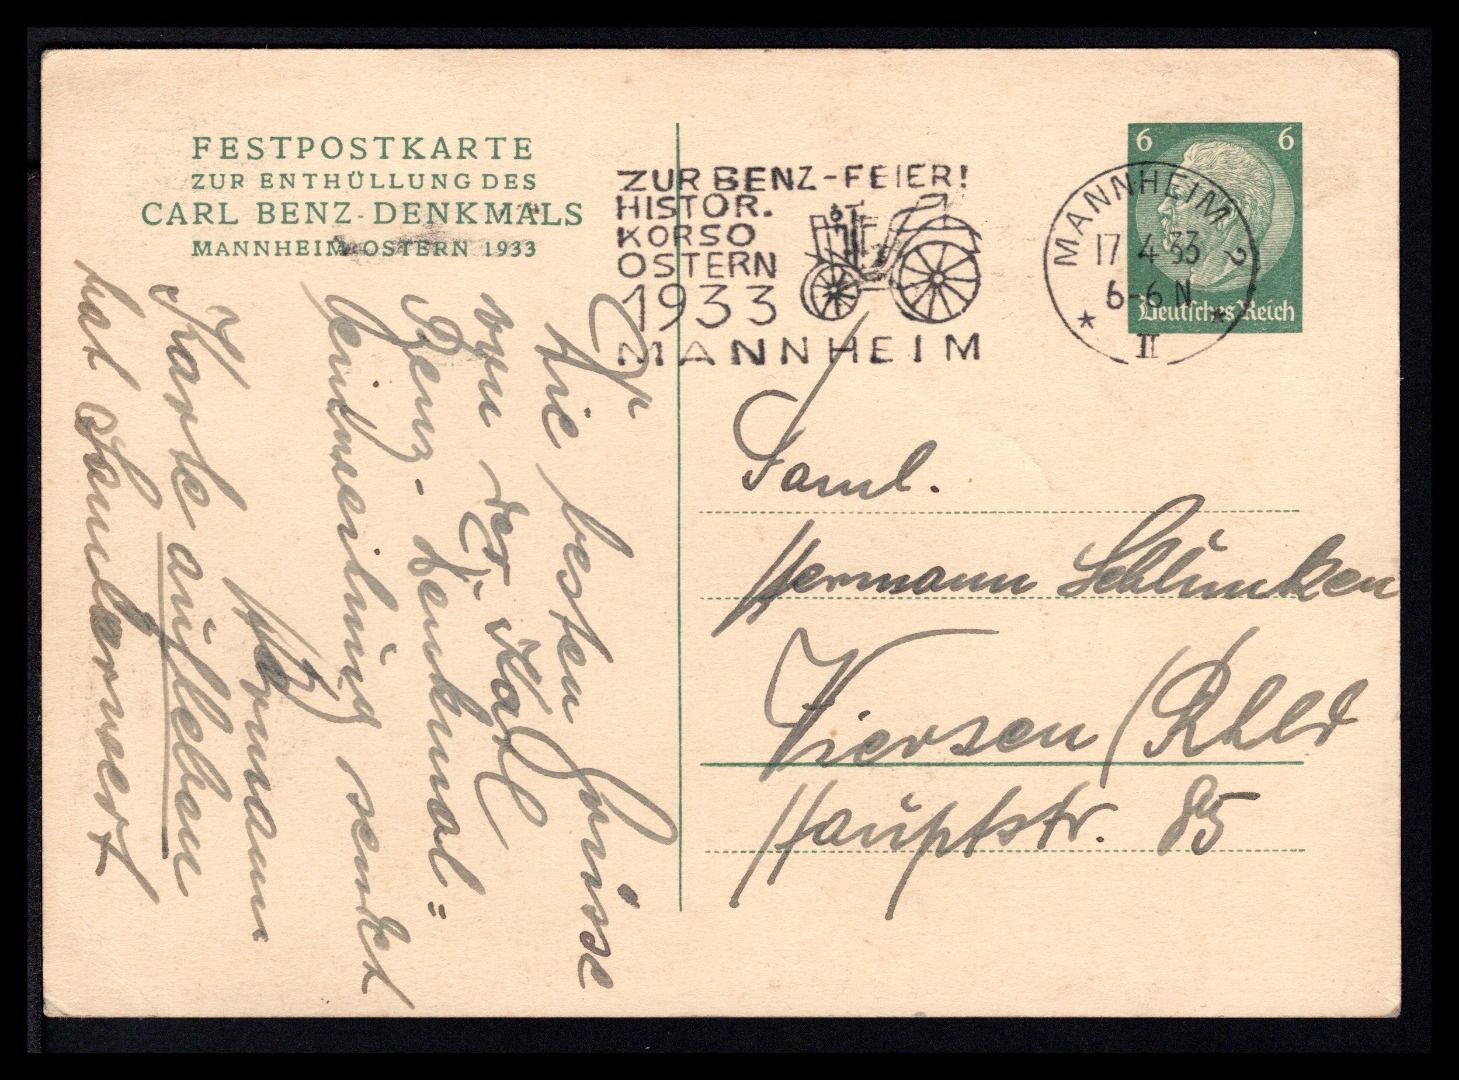 FESTPOSTKARTE
ZUR ENTHÜLLUNG DES
CARL BENZ-DENKMALS
MANNHEIM OSTERN 1933
ZUR BENZ-FEIER!
HISTOR.
KORSO
OSTERN
1933
MANNHEIM
MANNHEIM 2
17 4.33
6-6 N
* *
II
6 6
Deutsches Reich
Faml.
Hermann Schlünken
Viersen (Rhld
Hauptstr. 85
Die besten Grüsse
von der Karl
Benz-Denkmal=
einweihung sendet
Hermann
Karte aufleben
hat Sammlerwert